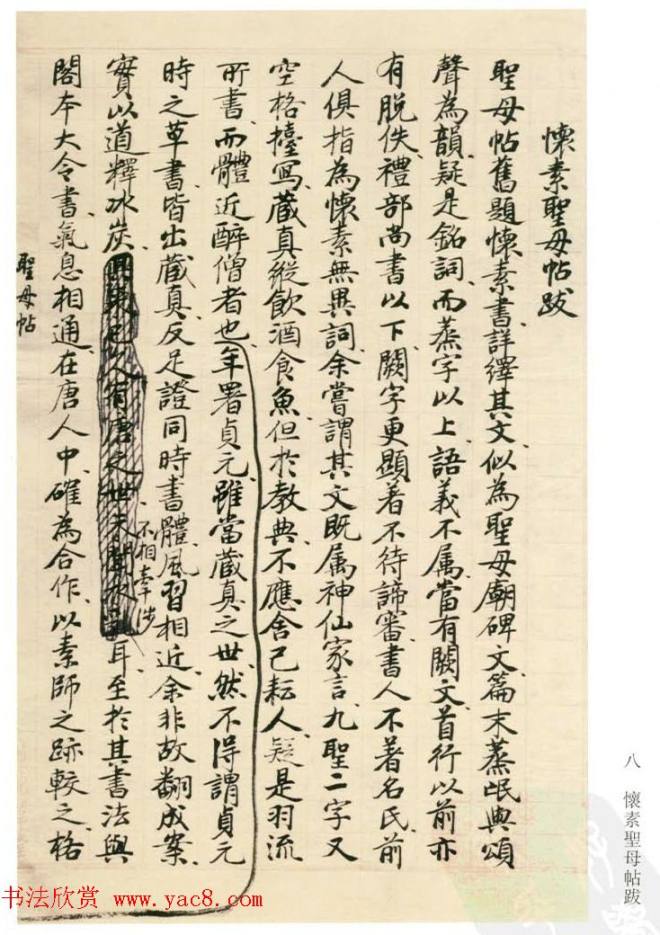 懷素聖母帖跋
聖母帖舊題懷素書、詳繹其文、似為聖母廟碑文、篇末蒸岷興頌
聲為韻、疑是銘詞、而蒸字以上、語義不属、當有闕文、首行以前亦
有脫佚、禮部尚書以下、闕字更顯著、不待諦審、書人不著名氏、前
人俱指為懷素無異詞、余嘗謂其文既属神仙家言、九聖二字又
空格擡寫、藏真縱飲酒食魚、但於教典不應舍己耘人、疑是羽流
所書、而體近醉僧者也、年署貞元、雖當藏真之世、然不得謂貞元
時之草書皆出藏真、反足證同時書體、風習相近、余非故翻成案、
實以道釋冰炭、不相牽涉耳、至於其書法與
閣本大令書、氣息相通、在唐人中、確為合作、以素師之跡較之、格
聖母帖
八 懷素聖母帖跋
书法欣赏 www.yac8.com